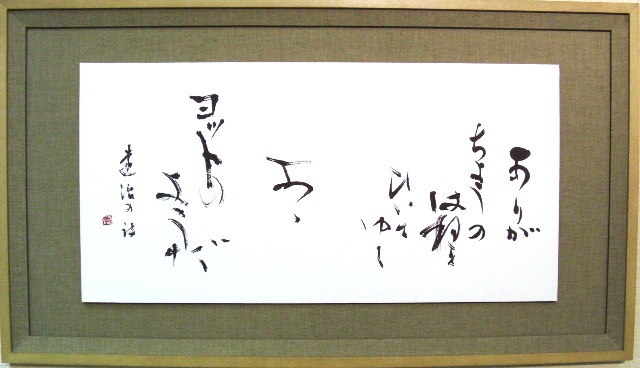 ありが
ちょうの
はねを
ひいて
ゆく
あゝ
ヨットの
ようだ
達治の詩